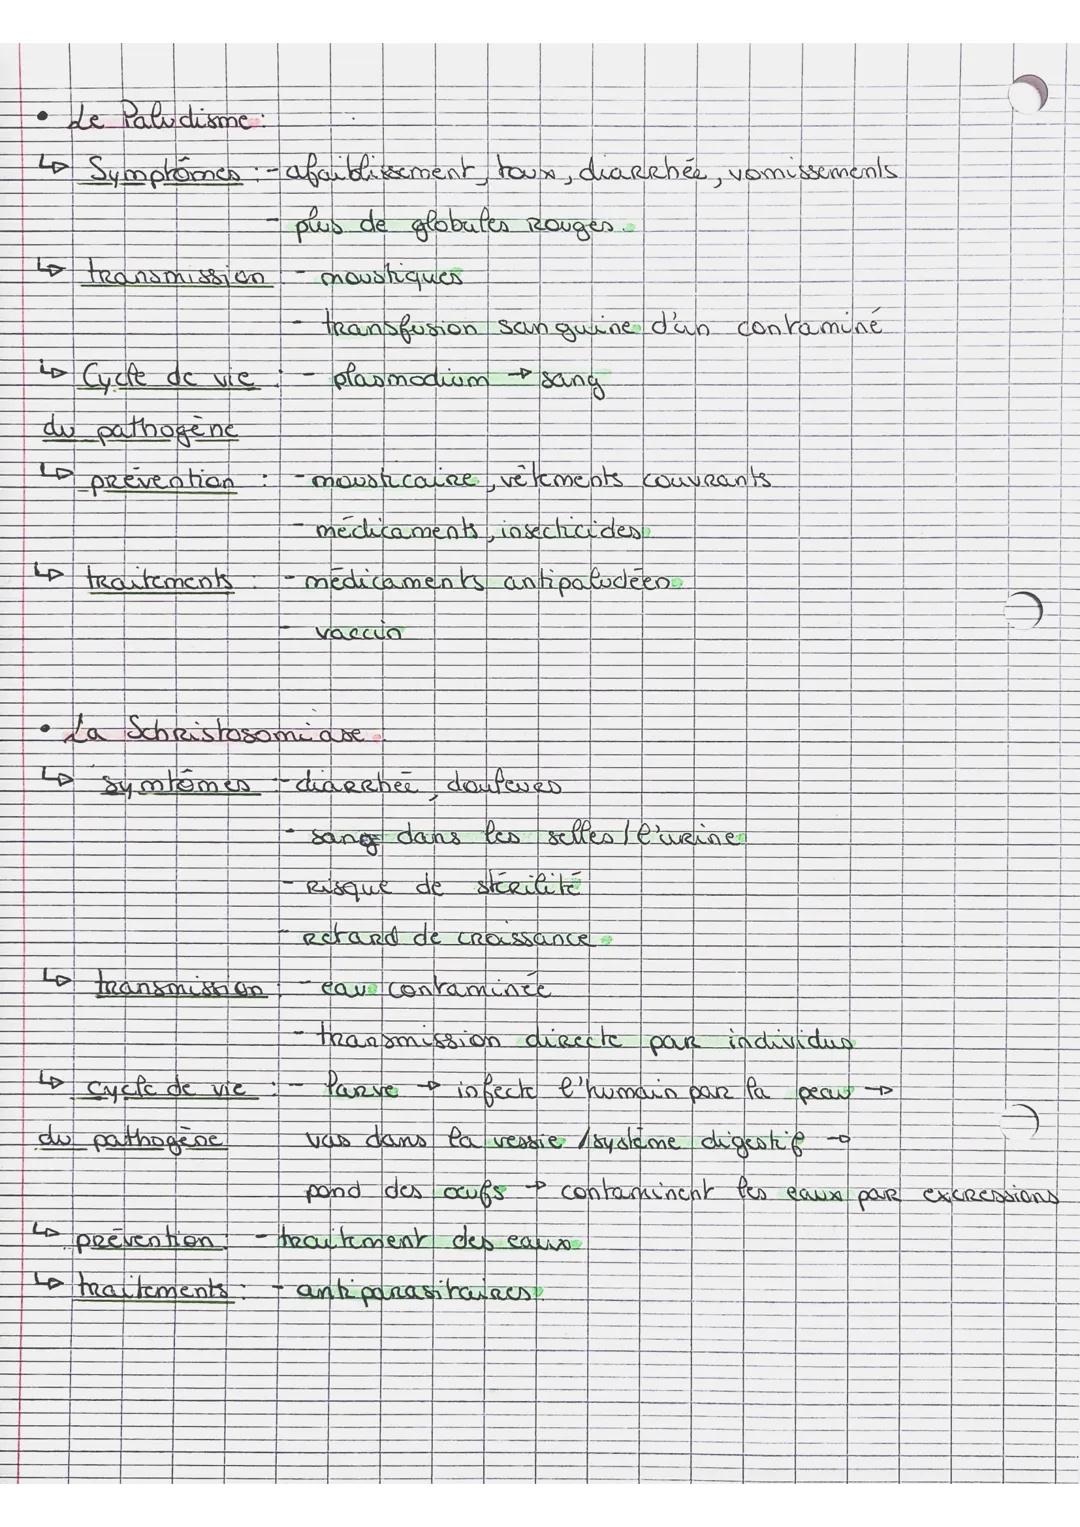 • Le Paludisme :
↳ Symptômes : - afaiblissement, toux, diarrhée, vomissements
- plus de globules rouges.
↳ transmission - moustiques
- transfusion sanguine d'un contaminé
↳ Cycle de vie : - plasmodium → sang
du pathogène
↳ prévention : - mousticaire, vêtements couvrants
- médicaments, insecticides
↳ traitements : - médicaments antipaludéen
- vaccin
• La Schristosomiase.
↳ symtômes - diarrhée, douleurs
- sang dans les selles / l'urine
- risque de stérilité
- retard de croissance
↳ transmission - eau contaminée
- transmission directe par individus
↳ cycle de vie : - larve → infecte l'humain par la peau →
du pathogène vas dans la vessie / système digestif →
pond des oeufs → contaminent les eaux par excressions
↳ prévention : - traitement des eaux
↳ traitements : - antiparasitaires